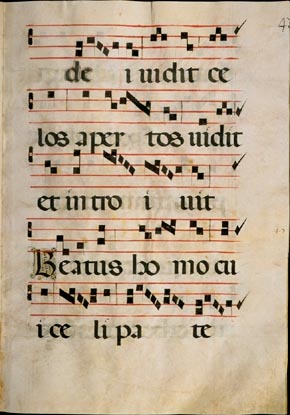 de i uidit ce
los aper tos uidit
et in tro i uit
Beatus ho mo cu
i ce li pa te